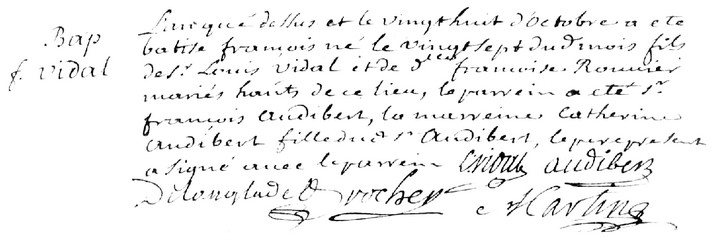 Bap
f. vidal
L'an que dessus et le vingthuit d'octobre a eté
batisé françois né le vingtsept dud. mois fils
de sr. Louis vidal et de dlle françoise Rouvier
mariés hauts de ce lieu, le parrein a eté sr.
françois audibert, la marreine Catherine
audibert fille dud sr audibert, le pere present
a signé avec le parrein audibert
Delonglade rocher Martin